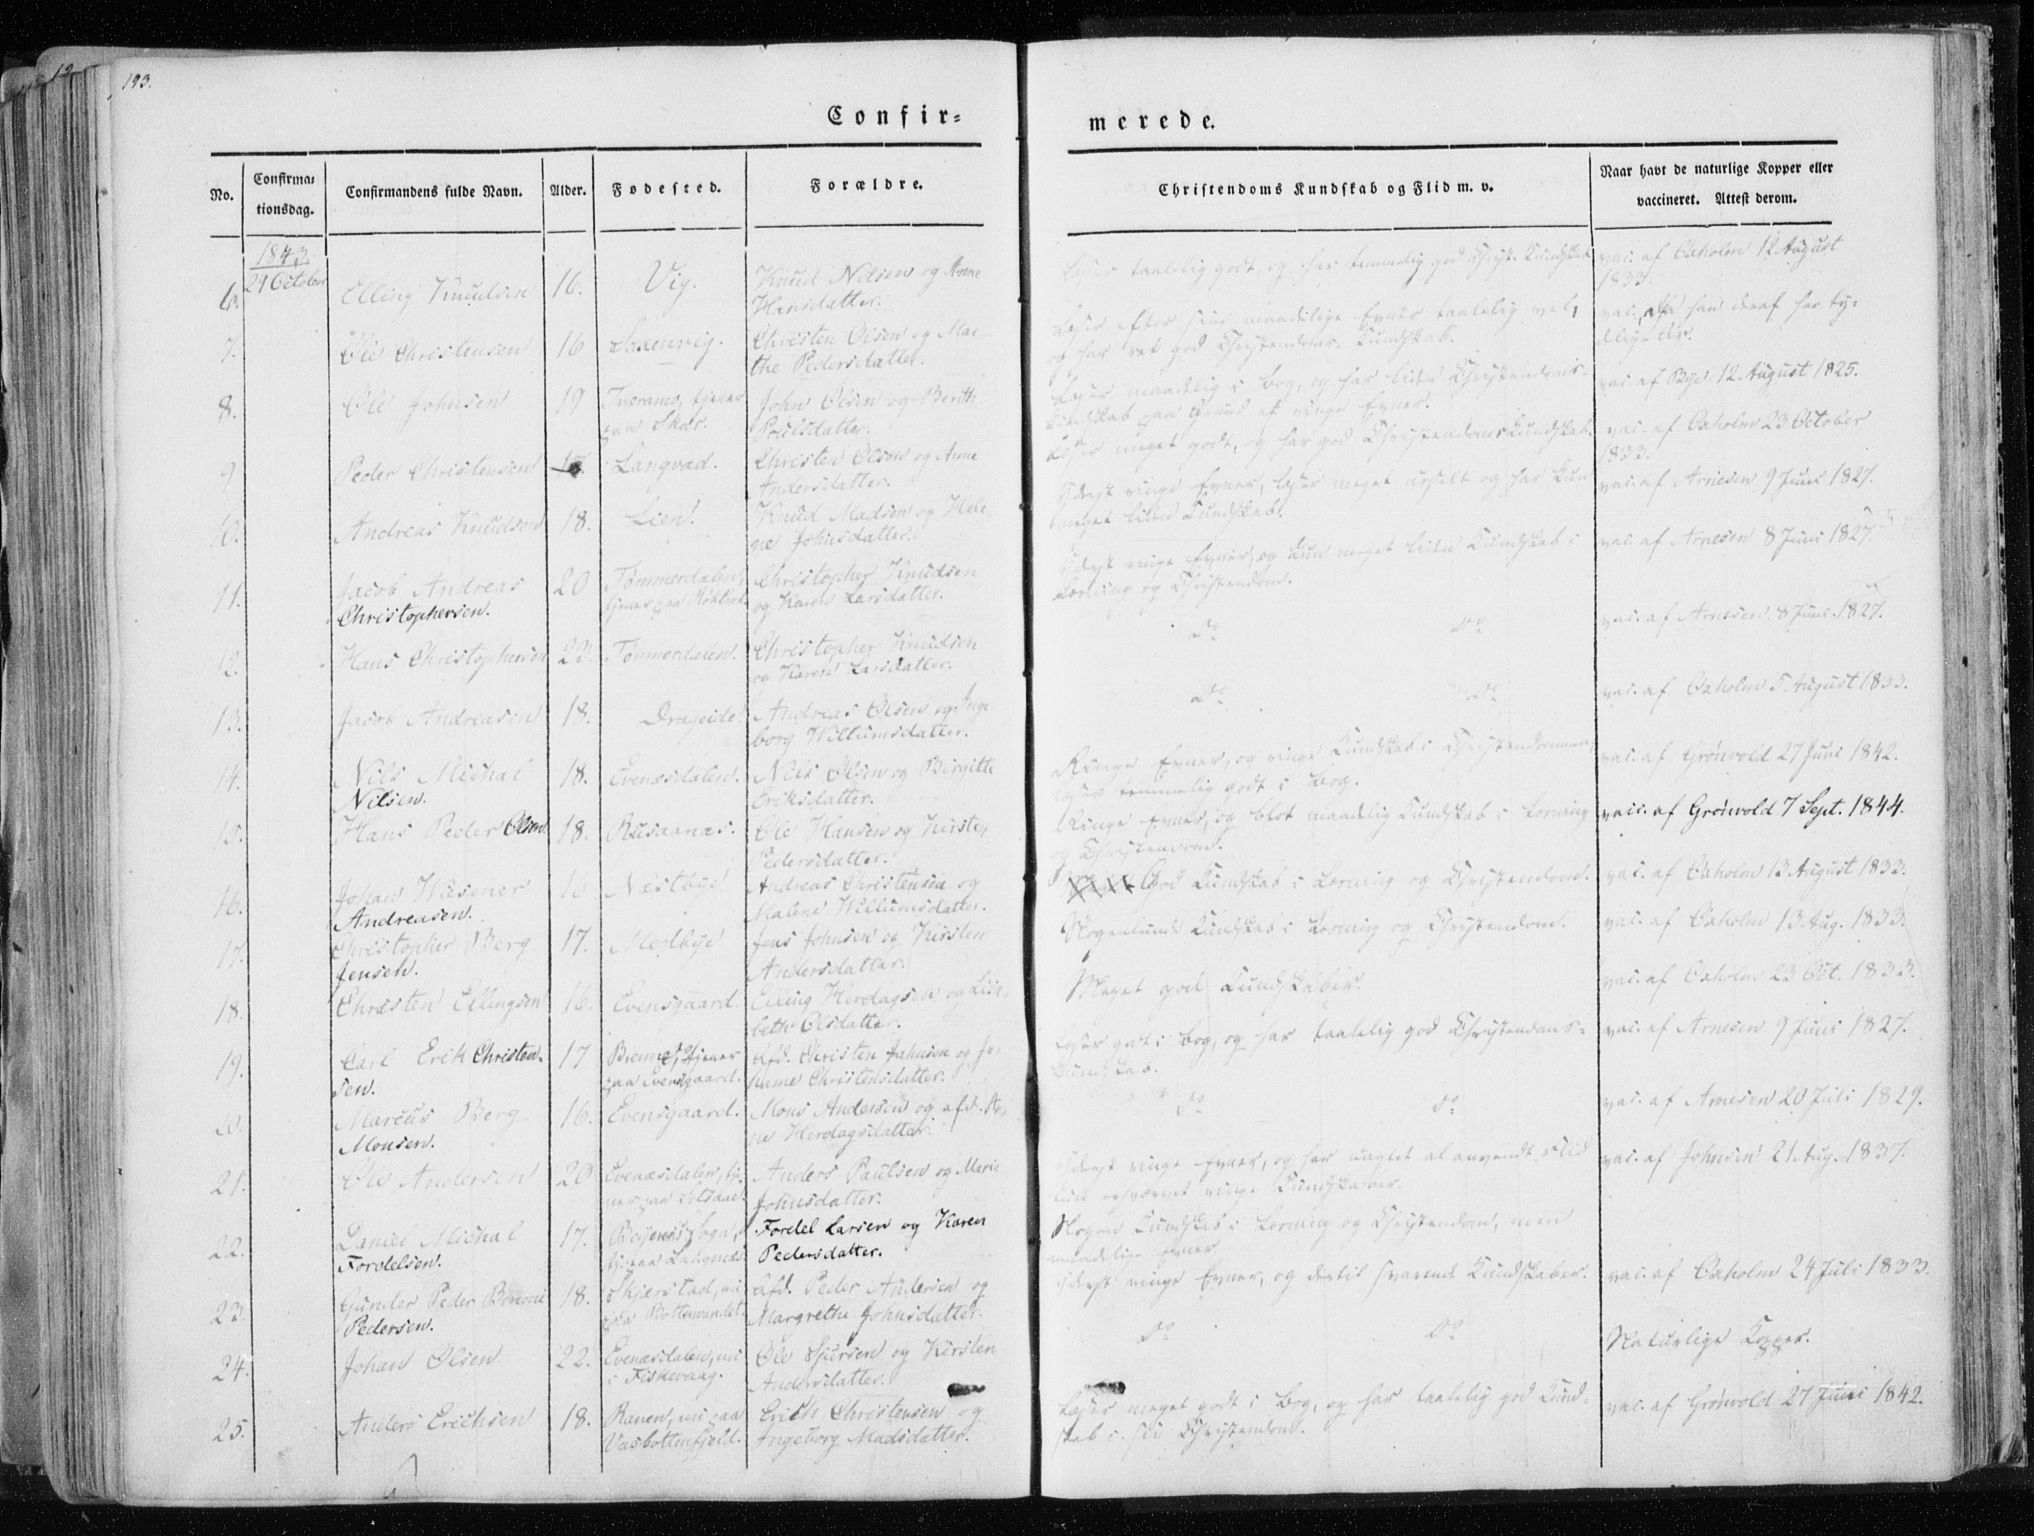 193.
Confir=
merede.
No.
Confirma=
tionsdag.
Confirmandens fulde Navn.
Alder.
Fødested.
Forældre.
Christendoms Kundskab og Flid m. v.
Naar havt de naturlige Kopper eller
vaccineret. Attest derom.
1843.
29 October
6.
Elling Knudsen
16.
Vig.
Knud Nilsen og Anne
Hansdatter.
Læser taalelig godt, og har temmelig god Christ. Kundskab
vac. af Oxholm 12 August
1833.
7.
Ole Christensen
16
Saxenvig.
Christen Olsen og Mar-
the Pedersdatter.
Læser efter sine maadelige Evner taalelig vel,
og har ret god Christendoms Kundskab.
vac., han deraf har ty=
delige Ar.
8.
Ole Johnsen
19
Tveramo, tjener
paa Skar.
John Olsen og Berith
Poulsdatter.
Læser maadelig i Bog, og har liden Christendoms
Kundskab paa Grund af ringe Evner.
vac. af Bye 12 August 1825.
9
Peder Christensen
Langvad.
Christen Olsen og Anne
Andersdatter.
Læser meget godt, og har god Christendoms Kundskab.
vac. af Oxholm 23 October
1833.
10.
Andreas Knudsen
18.
Lien.
Knud Madsen og Hele
ne Johnsdatter.
Yderst ringe Evner, læser meget uselt og har kun
meget liden Kundskab.
vac. af Arnesen 9 Juni 1827.
11.
Jacob Andreas
Christophersen.
20
Tømmerdalen,
tjener paa
Christopher Knudsen
og Karen Larsdatter.
Yderst ringe Evner, og kun meget liden Kundskab i
Læsning og Christendom.
vac. af Arnesen 8 Juni 1827.
12.
Hans Christophersen
22.
Tømmerdalen.
Christopher Knudsen
og Karen Larsdatter.
Do
Do
vac. af Arnesen 8 Juni 1827.
13.
Jacob Andreasen
18.
Drageide.
Andreas Olsen og Inge
borg Willumsdatter.
Do
Do
vac. af Oxholm 5 August 1833.
14.
Nils Michal
Nilsen.
18.
Evenæsdalen.
Nils Olsen og Birgitte
Eriksdatter.
Ringe Evner, og ringe Kundskab i Christendommen,
læser temmelig godt i Bog.
vac. af Grönvold 27 Juni 1842.
15.
Hans Peder Olsen
18.
Rusaanæs.
Ole Hansen og Kirsten
Pedersdatter.
Ringe Evner, og blot maadelig Kundskab i Læsning
og Christendom.
vacc. af Grönvold 7 Sept. 1844.
16.
Johan Wisener
Andreasen.
16
Næstbye
Andreas Christensen og
Malene Willumsdatter.
God Kundskab i Læsning og Christendom.
vac. af Oxholm 13 August 1833.
17.
Christopher Berg
Jensen.
17.
Medbye
Jens Johnsen og Kirsten
Andersdatter.
Nogenlunde Kundskab i Læsning og Christendom.
vac. af Oxholm 13 Aug. 1833.
18.
Christen Ellingsen
16.
Evensgaard.
Elling Herdagsen og Lisa-
beth Olsdatter.
Meget gode Kundskaber.
vac. af Oxholm 23 Oct. 1833.
19.
Carl Erik Christen-
sen.
17
Brenne, tjener
paa Evensgaard.
Afd. Christen Johnsen og Jo-
hanne Christensdatter.
Læser godt i Bog, og har taalelig god Christendoms=
Kundskab.
vac. af Arnesen 9 Juni 1827.
20.
Marcus Berg
Monsen.
16.
Evensgaard.
Mons Andersen og afd. An-
ne Herdagsdatter.
Do
Do
vac. af Arnesen 20 Juli 1829.
21.
Ole Andersen
20
Evenæsdalen, tje
ner paa
Anders Paulsen og Marie
Johnsdatter.
Yderst ringe Evner, og har uagtet al anvendt Flid
kun erhvervet ringe Kundskaber.
vac. af Johnsen 21 Aug. 1837.
22.
Daniel Michal
Fordelsen.
17.
Fordel Larsen og Karen
Pedersdatter.
Nogen Kundskab i Læsning og Christendom, men
maadelige Evner.
23.
Gunder Peder Benoni
Pedersen.
18.
Skjerstad, nu
paa Bottenvandet.
Afd. Peder Andersen og
Margrethe Johnsdatter.
Yderst ringe Evner, og dertil svarende Kundskaber.
vac. af Oxholm 24 Juli 1833.
24.
Johan Olsen
22.
Evenæsdalen, nu
i Fiskevaag.
Ole Sjursen og Kirsten
Andersdatter.
Do
Do
Naturlige Kopper.
25.
Anders Erichsen
18.
Ranen, nu paa
Vasbottenfjeld.
Erich Christensen og
Ingeborg Madsdatter.
Læser meget godt i Bog, og har taalelig god Kund-
skab i sin Christendom.
vac. af Grönvold 27 Juni 1842.